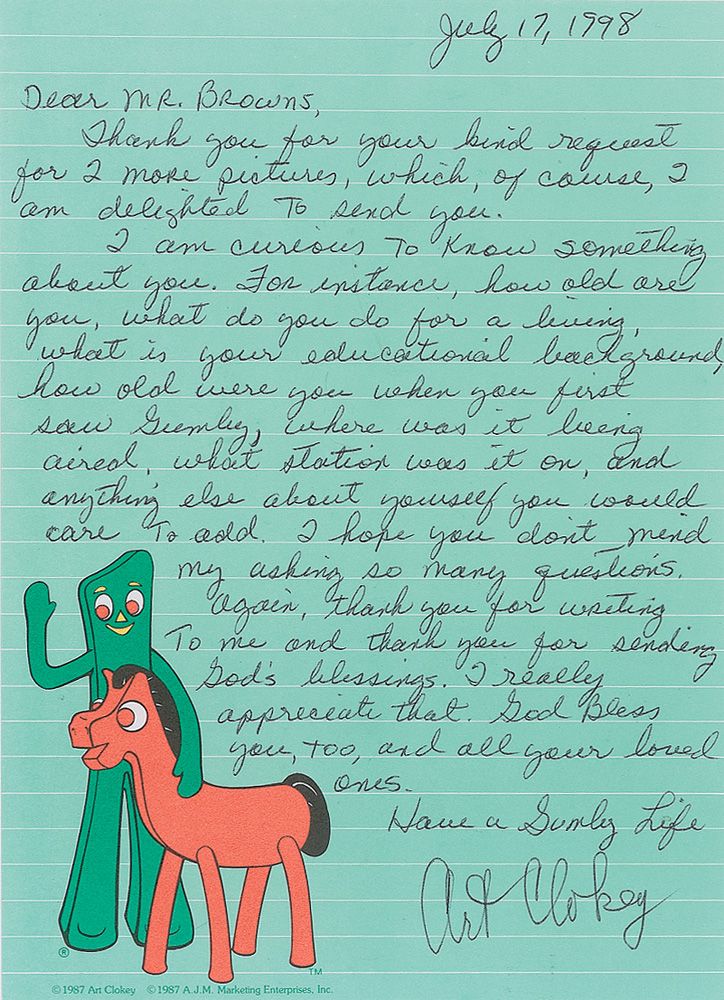 July 17, 1998
Dear MR. Browns,
Thank you for your kind request
for 2 more pictures, which, of course, I
am delighted To send you.
I am curious To Know something
about you. For instance, how old are
you, what do you do for a living,
what is your educational background,
how old were you when you first
saw Gumby, where was it being
aired, what station was it on, and
anything else about yourself you would
care To add. I hope you don't mind
my asking so many questions.
Again, thank you for writing
To me and thank you for sending
God's blessings. I really
appreciate that. God Bless
you, too, and all your loved
ones.
Have a Gumby Life
Art Clokey
®
TM
©1987 Art Clokey ©1987 A.J.M. Marketing Enterprises, Inc.